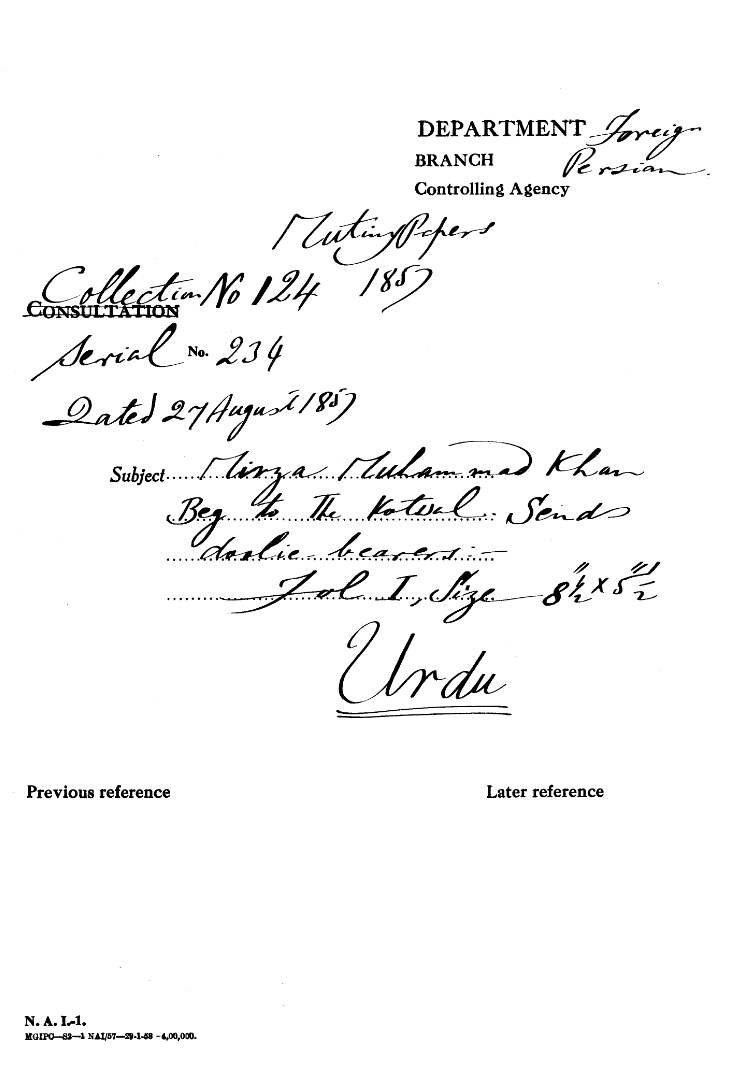 DEPARTMENT Foreign
BRANCH Persian
Controlling Agency
Mutiny Papers
Collection No 124 1857
CONSULTATION
Serial No. 234
Dated 27 August 1857
Subject Mirza Muhammad Khan
Beg to the Kotwal. Sends
doolie bearers:—
Fol I, Size 8½" x 5½"
Urdu
Previous reference Later reference
N. A. I.-1.
MGIPC—S2—1 NAI/57—29-1-58 -4,00,000.